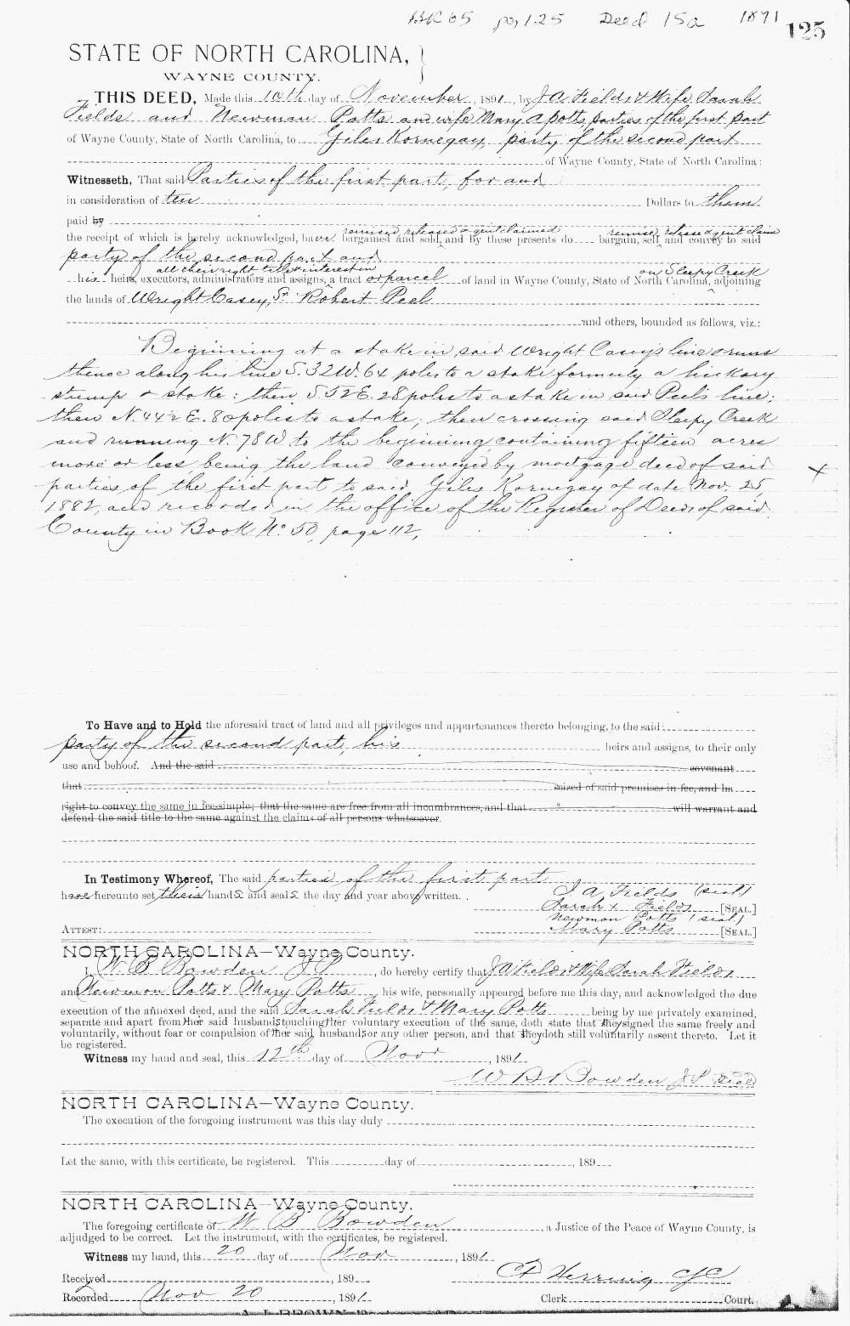 BK 65 pg 125 Deed 15a 1891
125
STATE OF NORTH CAROLINA,
WAYNE COUNTY.
THIS DEED, Made this 10th day of November, 1891, by J A Fields & Wife Sarah
Fields and Newman Potts and wife Mary A Potts, parties of the first part
of Wayne County, State of North Carolina, to Giles Kornegay, party of the second part
of Wayne County, State of North Carolina:
Witnesseth, That said Parties of the first part, for and
in consideration of ten Dollars to them
paid by
remised released & quit claimed remise, release & quit claim
the receipt of which is hereby acknowledged, have bargained and sold, and by these presents do bargain, sell and convey to said
party of the second part and
all their right title & interest in on Sleepy Creek
his heirs, executors, administrators and assigns, a tract or parcel of land in Wayne County, State of North Carolina, adjoining
the lands of Wright Casey, Sr Robert Peel
and others, bounded as follows, viz.:
Beginning at a stake in said Wright Casey's line & runs
thence along his line S. 32 W. 64 poles to a stake formerly a hickory
stump & stake: then S 52 E. 28 poles to a stake in said Peel's line;
then N. 44½ E. 80 poles to a stake; then crossing said Sleepy Creek
and running N. 78 W to the beginning containing fifteen acres
more or less being the land conveyed by mortgage deed of said
parties of the first part to said Giles Kornegay of date Nov. 25,
1882, and recorded in the office of the Register of Deeds of said
County in Book No 50, page 112,
X
To Have and to Hold the aforesaid tract of land and all privileges and appurtenances thereto belonging, to the said
party of the second part, his heirs and assigns, to their only
use and behoof. And the said covenant
that seized of said premises in fee, and ha
right to convey the same in fee-simple; that the same are free from all incumbrances, and that will warrant and
defend the said title to the same against the claims of all persons whatsoever.
In Testimony Whereof, The said parties of the first part
have hereunto set their hands and seals the day and year above written.
J A Fields (seal)
Sarah x Fields [SEAL.]
Newman Potts (seal)
ATTEST: Mary Potts [SEAL.]
NORTH CAROLINA—Wayne County.
I, W B Bowden J P, do hereby certify that J A Fields & Wife Sarah Fields
and Newman Potts & Mary Potts, his wife, personally appeared before me this day, and acknowledged the due
execution of the annexed deed, and the said Sarah Fields & Mary Potts being by me privately examined,
separate and apart from their said husbands, touching their voluntary execution of the same, doth state that they signed the same freely and
voluntarily, without fear or compulsion of their said husbands or any other person, and that they doth still voluntarily assent thereto. Let it
be registered.
Witness my hand and seal, this 12th day of Nov, 1891.
W B Bowden J P Seal
NORTH CAROLINA—Wayne County.
The execution of the foregoing instrument was this day duly
Let the same, with this certificate, be registered. This day of , 189
NORTH CAROLINA—Wayne County.
The foregoing certificate of W B Bowden, a Justice of the Peace of Wayne County, is
adjudged to be correct. Let the instrument, with the certificates, be registered.
Witness my hand, this 20 day of Nov, 1891.
Received , 189 Herring CSC
Recorded Nov 20, 1891 Clerk Court.